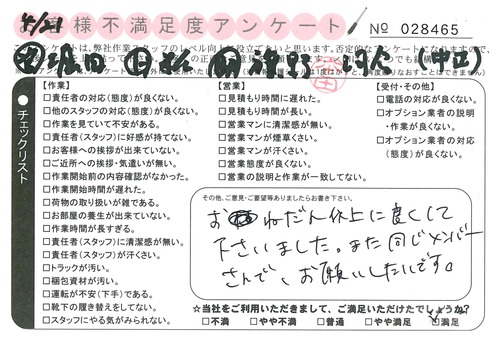 4/21
お客様不満足度アンケート
No 028465
【作業】
□責任者の対応(態度)が良くない。
□他のスタッフの対応(態度)が良くない。
□作業を見ていて不安がある。
□責任者(スタッフ)に好感が持てない。
□お客様への挨拶が出来ていない。
□ご近所への挨拶・気遣いが無い。
□作業開始前の内容確認がなかった。
□作業開始時間が遅れた。
□荷物の取り扱いが雑である。
□お部屋の養生が出来ていない。
□作業時間が長すぎる。
□責任者(スタッフ)に清潔感が無い。
□責任者(スタッフ)が汗くさい。
□トラックが汚い。
□梱包資材が汚い。
□運転が不安(下手)である。
□靴下の履き替えをしてない。
□スタッフにやる気がみられない。
【営業】
□見積もり時間に遅れた。
□見積もり時間が長い。
□営業マンに清潔感が無い。
□営業マンが煙草くさい。
□営業マンが汗くさい。
□営業態度が良くない。
□営業の説明と作業が一致してない。
【受付・その他】
□電話の対応が良くない。
□オプション業者の説明
・作業が良くない。
□オプション業者の対応
(態度)が良くない。
●チェックリスト
その他、ご意見・ご要望等ありましたらお書き下さい。
おねだん以上に良くして
下さいました。また同じメンバー
さんで、お願いしたいです。
☆当社をご利用いただきまして、ご満足いただけたでしょうか?
□不満 □やや不満 □普通 □やや満足 □満足